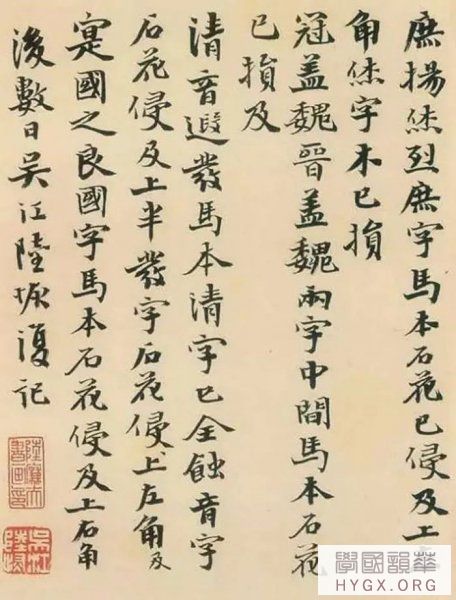 庶揚烋烈庶字馬本石花已侵及上
角烋字木已損
冠盖魏晉盖魏兩字中間馬本石花
已損及
清音遐發馬本清字已全蝕音字
石花侵及上半發字石花侵上左角及
寔國之良國字馬本石花侵及上右角
後數日吴江陸恢復記
陸廉夫書画印
吳江陸恢
華韻國學
HYGX.ORG